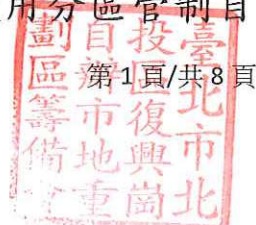 用分區管制自
第1頁/共8頁
臺北市北
投區復興崗
自辦市地重
劃區籌備會